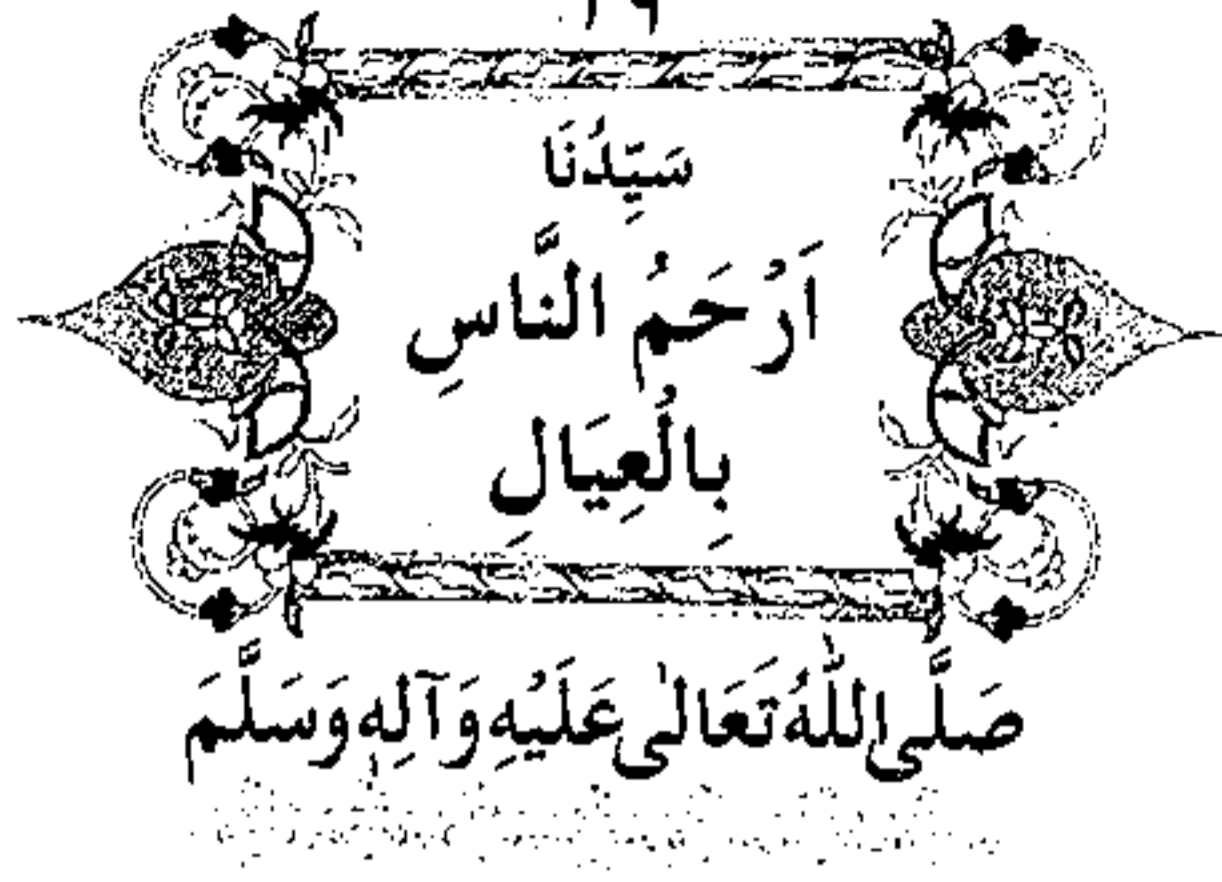 سَيِّدُنَا
اَرْحَمُ النَّاسِ
بِالْعِيَالِ
صَلَّى اللّٰهُ تَعَالٰى عَلَيْهِ وَآلِهٖ وَسَلَّمَ